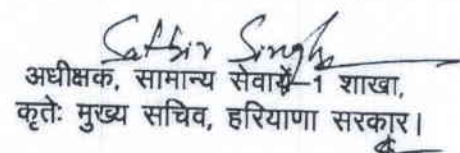 Satbir Singh
अधीक्षक, सामान्य सेवायें-1 शाखा,
कृतेः मुख्य सचिव, हरियाणा सरकार।